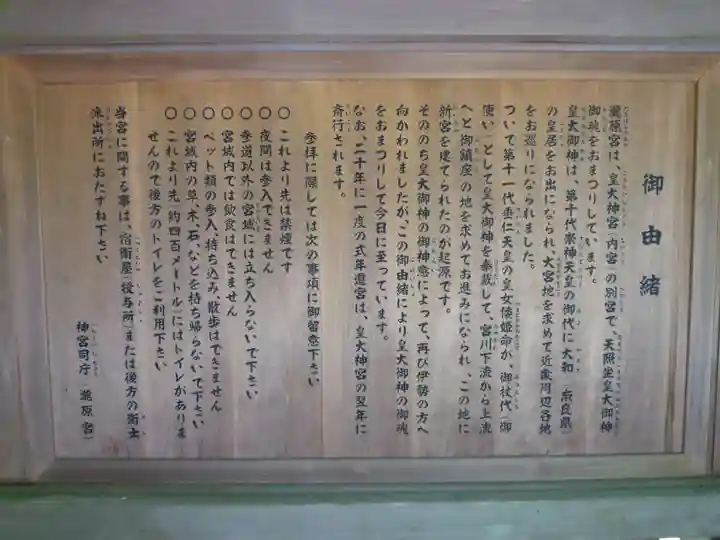 御由緒
瀧原宮は、皇大神宮(内宮)の別宮で、天照坐皇大御神
御魂をおまつりしています。
皇大御神は、第十代崇神天皇の御代に大和(奈良県)
の皇居をお出になられ、大宮地を求めて近畿周辺各地
をお巡りになられました。
ついで第十一代垂仁天皇の皇女倭姫命が、御杖代(御
使い)として皇大御神を奉戴して、宮川下流から上流
へと御鎮座の地を求めてお進みになられ、この地に
新宮を建てられたのが起源です。
そののち皇大御神の御神慮によって、再び伊勢の方へ
向かわれましたが、この御由緒により皇大御神の御魂
をおまつりして今日に至っています。
なお、二十年に一度の式年遷宮は、皇大神宮の翌年に
斎行されます。
参拝に際しては次の事項に御留意下さい
○ これより先は禁煙です
○ 夜間は参入できません
○ 参道以外の宮域には立ち入らないで下さい
○ 宮域内では飲食はできません
○ ペット類の参入、持ち込み、散歩はできません
○ 宮域内の草、木、石、などを持ち帰らないで下さい
○ これより先(約四百メートル)にはトイレがありま
せんので後方のトイレをご利用下さい
当宮に関する事は、宿衛屋(授与所)または後方の衛士
派出所におたずね下さい
神宮司庁(瀧原宮)